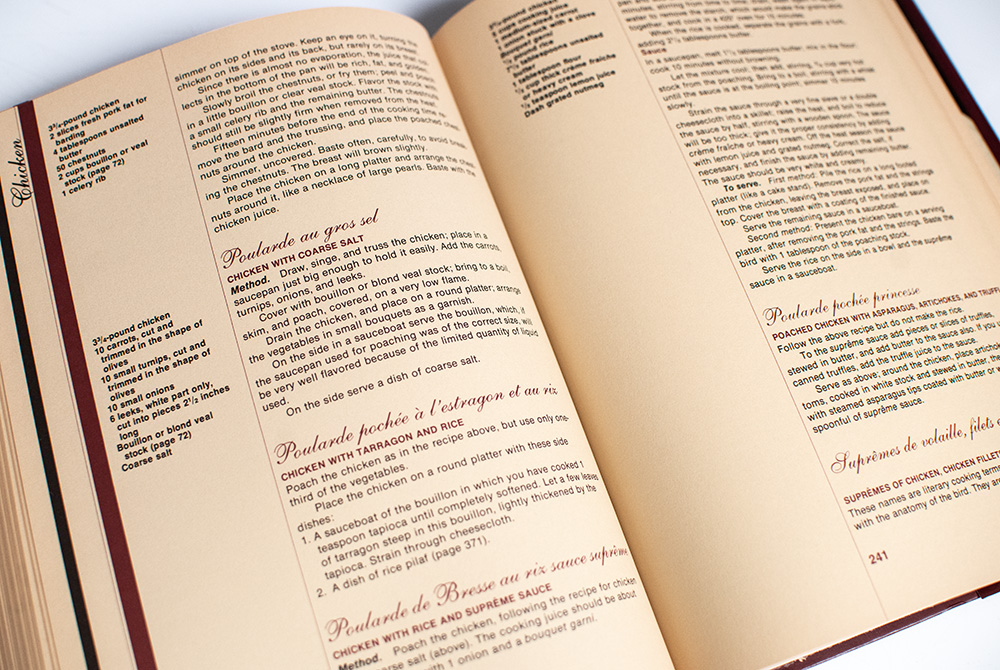 Chicken
3¾-pound chicken
2 slices fresh pork fat for
barding
4 tablespoons unsalted
butter
50 chestnuts
2 cups bouillon or veal
stock (page 72)
1 celery rib
simmer on top of the stove. Keep an eye on it, turning the
chicken on its sides and its back, but rarely on its breast.
Since there is almost no evaporation, the juice that col-
lects in the bottom of the pan will be rich, fat, and golden.
Slowly broil the chestnuts, or fry them; peel and poach
in a little bouillon or clear veal stock. Flavor the stock with
a small celery rib and the remaining butter. The chestnuts
should still be slightly firm when removed from the heat.
Fifteen minutes before the end of the cooking time, re-
move the bard and the trussing, and place the poached chest-
nuts around the chicken.
Simmer, uncovered. Baste often, carefully, to avoid break-
ing the chestnuts. The breast will brown slightly.
Place the chicken on a long platter and arrange the chest-
nuts around it, like a necklace of large pearls. Baste with the
chicken juice.
Poularde au gros sel
CHICKEN WITH COARSE SALT
3¾-pound chicken
10 carrots, cut and
trimmed in the shape of
olives
10 small turnips, cut and
trimmed in the shape of
olives
10 small onions
6 leeks, white part only,
cut into pieces 2½ inches
long
Bouillon or blond veal
stock (page 72)
Coarse salt
Method. Draw, singe, and truss the chicken; place in a
saucepan just big enough to hold it easily. Add the carrots,
turnips, onions, and leeks.
Cover with bouillon or blond veal stock; bring to a boil,
skim, and poach, covered, on a very low flame.
Drain the chicken, and place on a round platter; arrange
the vegetables in small bouquets as a garnish.
On the side in a sauceboat serve the bouillon, which, if
the saucepan used for poaching was of the correct size, will
be very well flavored because of the limited quantity of liquid
used.
On the side serve a dish of coarse salt.
Poularde pochée à l'estragon et au riz
CHICKEN WITH TARRAGON AND RICE
Poach the chicken as in the recipe above, but use only one-
third of the vegetables.
Place the chicken on a round platter with these side
dishes:
1. A sauceboat of the bouillon in which you have cooked 1
teaspoon tapioca until completely softened. Let a few leaves
of tarragon steep in this bouillon, lightly thickened by the
tapioca. Strain through cheesecloth.
2. A dish of rice pilaf (page 371).
Poularde de Bresse au riz sauce suprême
CHICKEN WITH RICE AND SUPRÊME SAUCE
Method. Poach the chicken, following the recipe for chicken
salt (above). The cooking juice should be about
with 1 onion and a bouquet garni.
-pound chicken
cups cooking juice
medium-sized carrot
onion stuck with a clove
Bouquet garni
cup rice
tablespoons unsalted
butter
1 tablespoon flour
cup thick crème fraîche
or heavy cream
teaspoon lemon juice
Dash grated nutmeg
water to remove
together, and cook in a 400° oven for 15 minutes.
When the rice is cooked, separate the grains with a fork,
adding 2½ tablespoons butter.
Sauce
In a saucepan, melt 1½ tablespoons butter; mix in the flour;
cook 10 minutes without browning.
Let the mixture cool; then add, stirring, ¾ cup very hot
stock from the poaching. Bring to a boil, stirring with a whisk
until the sauce is at the boiling point; simmer 10 minutes
slowly.
Strain the sauce through a very fine sieve or a double
cheesecloth into a skillet; raise the heat, and boil to reduce
the sauce by half, stirring with a wooden spoon. The sauce
will be thick; give it the proper consistency by adding
crème fraîche or heavy cream. Off the heat season the sauce
with lemon juice and grated nutmeg. Correct the salt, if
necessary, and finish the sauce by adding remaining butter.
The sauce should be very white and creamy.
To serve. First method: Pile the rice on a long footed
platter (like a cake stand). Remove the pork fat and the strings
from the chicken, leaving the breast exposed, and place on
top. Cover the breast with a coating of the finished sauce.
Serve the remaining sauce in a sauceboat.
Second method: Present the chicken bars on a serving
platter, after removing the pork fat and the strings. Baste the
bird with 1 tablespoon of the poaching stock.
Serve the rice on the side in a bowl and the suprême
sauce in a sauceboat.
Poularde pochée princesse
POACHED CHICKEN WITH ASPARAGUS, ARTICHOKES, AND TRUFF
Follow the above recipe but do not make the rice.
To the suprême sauce add pieces or slices of truffles,
stewed in butter, and add butter to the sauce also. If you
canned truffles, add the truffle juice to the sauce.
Serve as above; around the chicken, place artichoke
toms, cooked in white stock and stewed in butter, th
with steamed asparagus tips coated with butter or w
spoonful of suprême sauce.
Suprêmes de volaille, filets
SUPRÊMES OF CHICKEN, CHICKEN FILLETS
These names are literary cooking terms
with the anatomy of the bird. They are
241